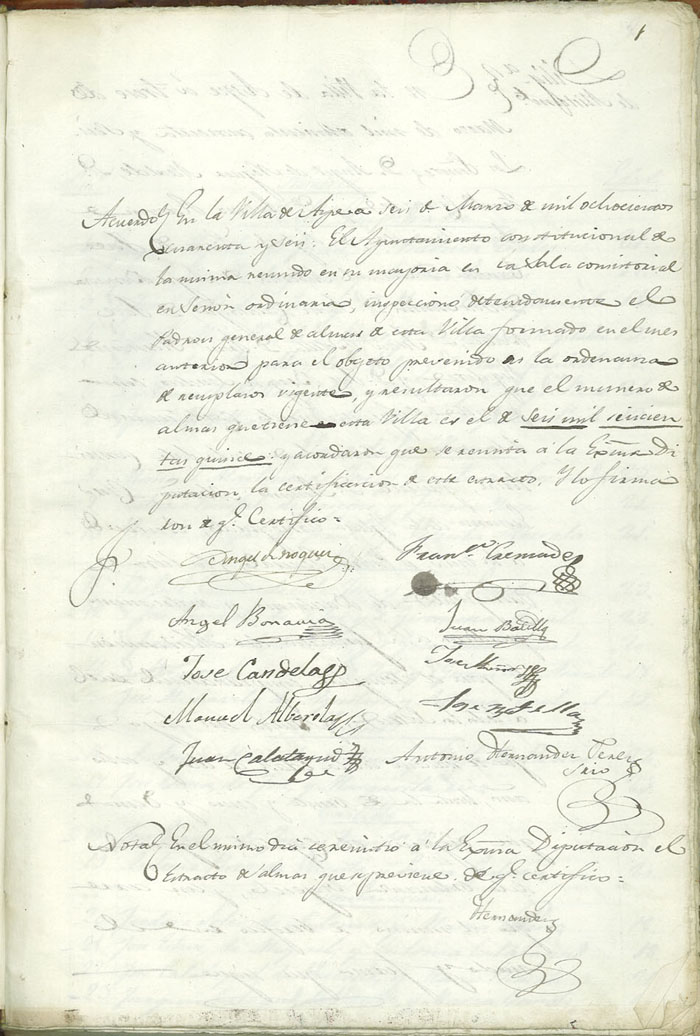 1
Acuerdo En la Villa de Aspe a seis de Marzo de mil ochocientos
cuarenta y seis: El Ayuntamiento constitucional de
la misma reunido en su mayoria en la Sala consistorial
en sesion ordinaria, inspecciono detenidamente el
Padron general de almas de esta Villa formado en el mes
anterior para el objeto prevenido en la ordenanza
de remplazos vigente, y resultaron que el numero de
almas que tiene esta Villa es el de seis mil seiscien
tas quince: y acordaron que se remita á la Exma Di
putacion, la certificacion de este estracto. Y lo firma
ron de q.e Certifico=
Fran.co Cremades
Angel Bonavia
Juan Botella
Jose Candela
Jose Muñoz
Manuel Alberola
Juan Calatayud
Antonio Hernandez Perez
Srio
Nota En el mismo dia se remitio á la Exma Diputacion el
Estracto de almas que se previene de q.e certifico=
Hernandez